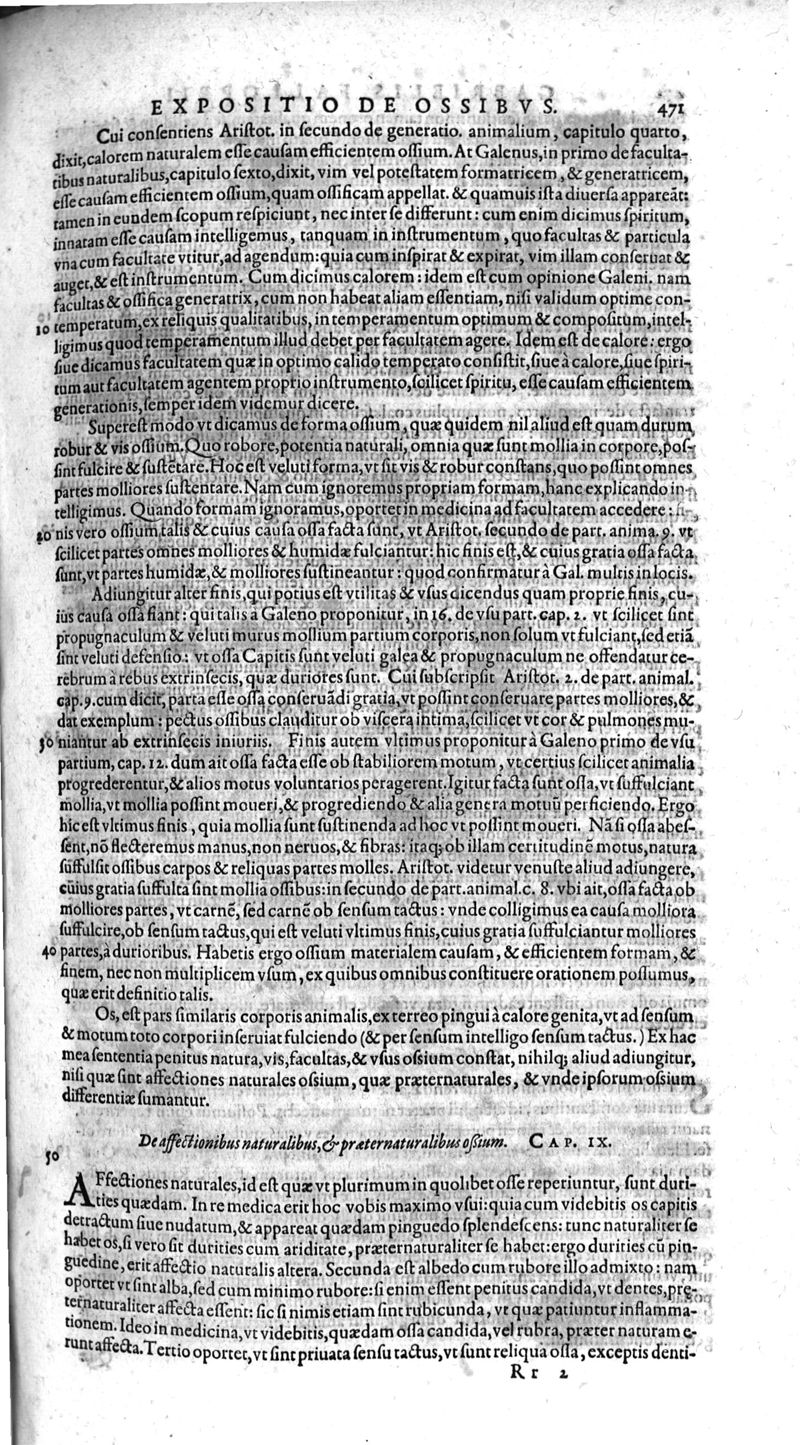 EXPOSITIO DE OSSIBVS. 471
Cui consentiens Aristot. in secundo de generatio. animalium, capitulo quarto,
dixit, calorem naturalem esse causam efficientem ossium. At Galenus, in primo de faculta-
tibus naturalibus, capitulo sexto, dixit, vim vel potestatem formatricem, & generatricem,
esse causam efficientem ossium, quam ossificam appellat. & quamuis ista diuersa appareãt:
tamen in eundem scopum respiciunt, nec inter se differunt: cum enim dicimus spiritum,
innatam esse causam intelligemus, tanquam in instrumentum, quo facultas & particula
vna cum facultate vtitur, ad agendum: quia cum inspirat & expirat, vim illam conseruat &
auget, & est instrumentum. Cum dicimus calorem: idem est cum opinione Galeni. nam
facultas & ossifica generatrix, cum non habeat aliam essentiam, nisi validum optime con-
10 temperatum, ex reliquis qualitatibus, in temperamentum optimum & compositum, intel-
ligimus quod temperamentum illud debet per facultatem agere. Idem est de calore: ergo
siue dicamus facultatem quæ in optimo calido temperato consistit, siue à calore, siue spiri-
tum aut facultatem agentem proprio instrumento, scilicet spiritu, esse causam efficientem
generationis, semper idem videmur dicere.
Superest modo vt dicamus de forma ossium, quæ quidem nil aliud est quam durum
robur & vis ossium. Quo robore, potentia naturali, omnia quæ sunt mollia in corpore, pos-
sint fulcire & sustẽtare. Hoc est veluti forma, vt sit vis & robur constans, quo possint omnes
partes molliores sustentare. Nam cum ignoremus propriam formam, hanc explicando in-
telligimus. Quando formam ignoramus, oportet in medicina ad facultatem accedere: fi-
20 nis vero ossium talis & cuius causa ossa facta sunt, vt Aristot. secundo de part. anima. 9. vt
scilicet partes omnes molliores & humidæ fulciantur: hic finis est, & cuius gratia ossa facta
sunt, vt partes humidæ, & molliores sustineantur: quod confirmatur à Gal. multis in locis.
Adiungitur alter finis, qui potius est vtilitas & vsus dicendus quam proprie finis, cu-
ius causa ossa fiant: qui talis à Galeno proponitur, in 16. de vsu part. cap. 2. vt scilicet sint
propugnaculum & veluti murus mollium partium corporis, non solum vt fulciant, sed etiã
sint veluti defensio: vt ossa Capitis sunt veluti galea & propugnaculum ne offendatur ce-
rebrum à rebus extrinsecis, quæ duriores sunt. Cui subscripsit Aristot. 2. de part. animal.
cap. 9. cum dicit, parta esse ossa conseruãdi gratia, vt possint conseruare partes molliores, &
dat exemplum: pectus ossibus clauditur ob viscera intima, scilicet vt cor & pulmones mu-
30 niantur ab extrinsecis iniuriis. Finis autem vltimus proponitur à Galeno primo de vsu
partium, cap. 12. dum ait ossa facta esse ob stabiliorem motum, vt certius scilicet animalia
progrederentur, & alios motus voluntarios peragerent. Igitur facta sunt ossa, vt suffulciant
mollia, vt mollia possint moueri, & progrediendo & alia genera motuũ perficiendo. Ergo
hic est vltimus finis, quia mollia sunt sustinenda ad hoc vt possint moueri. Nã si ossa abes-
sent, nõ flecteremus manus, non neruos, & fibras: itaq; ob illam certitudinẽ motus, natura
suffulsit ossibus carpos & reliquas partes molles. Aristot. videtur venuste aliud adiungere,
cuius gratia suffulta sint mollia ossibus: in secundo de part. animal. c. 8. vbi ait, ossa facta ob
molliores partes, vt carnẽ, sed carnẽ ob sensum tactus: vnde colligimus ea causa molliora
suffulcire, ob sensum tactus, qui est veluti vltimus finis, cuius gratia suffulciantur molliores
40 partes, à durioribus. Habetis ergo ossium materialem causam, & efficientem formam, &
finem, nec non multiplicem vsum, ex quibus omnibus constituere orationem possumus,
quæ erit definitio talis.
Os, est pars similaris corporis animalis, ex terreo pingui à calore genita, vt ad sensum
& motum toto corpori inseruiat fulciendo (& per sensum intelligo sensum tactus.) Ex hac
mea sententia penitus natura, vis, facultas, & vsus ossium constat, nihilq; aliud adiungitur,
nisi quæ sint affectiones naturales ossium, quæ præternaturales, & vnde ipsorum ossium
differentiæ sumantur.
De affectionibus naturalibus, & præternaturalibus ossium. CAP. IX.
50
AFfectiones naturales, id est quæ vt plurimum in quolibet osse reperiuntur, sunt duri-
ties quædam. In re medica erit hoc vobis maximo vsui: quia cum videbitis os capitis
detractum siue nudatum, & appareat quædam pinguedo splendescens: tunc naturaliter se
habet os, si vero sit durities cum ariditate, præternaturaliter se habet: ergo durities cũ pin-
guedine, erit affectio naturalis altera. Secunda est albedo cum rubore illo admixto: nam
oportet vt sint alba, sed cum minimo rubore: si enim essent penitus candida, vt dentes, prę-
ternaturaliter affecta essent: sic si nimis etiam sint rubicunda, vt quæ patiuntur inflamma-
tionem. Ideo in medicina, vt videbitis, quædam ossa candida, vel rubra, præter naturam e-
runt affecta. Tertio oportet, vt sint priuata sensu tactus, vt sunt reliqua ossa, exceptis denti-
Rr 2